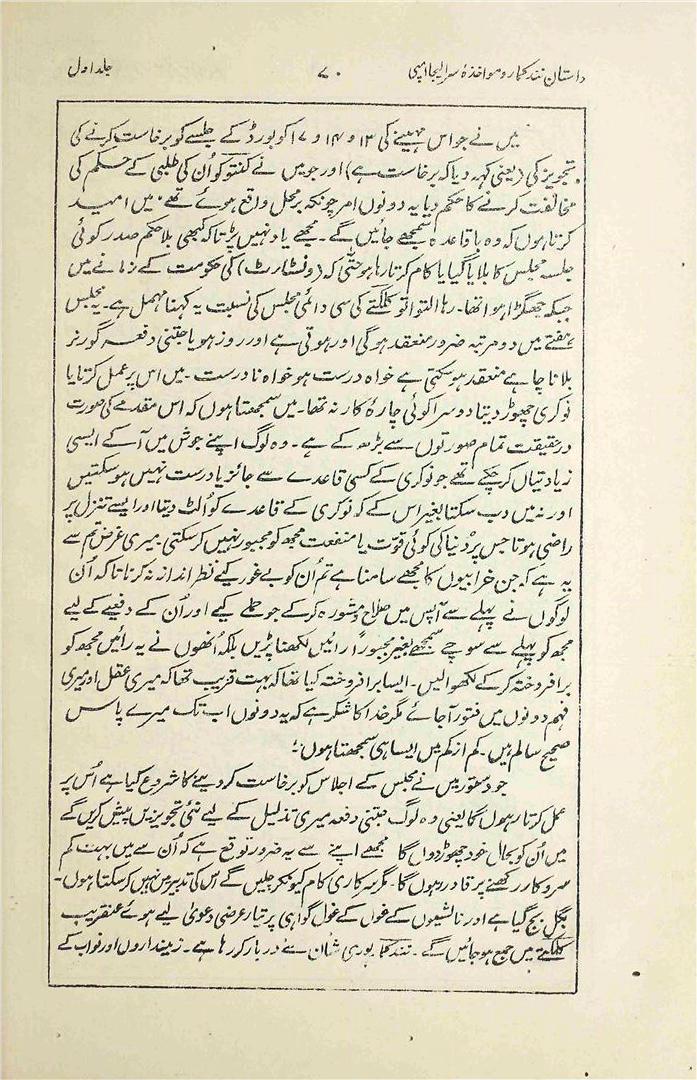 داستان نند کمار و مواخذۂ سر ایلجا امپی ۷۰ جلد اول
میں نے جو اس مہینے کی ۱۳ و ۱۴ و ۱۷ کو بورڈ کے جلسے کو برخاست کرنے کی
تجویز کی (یعنی کہہ دیا کہ برخاست ہے) اور جو میں نے کنتو کو اُن کی طلبی کے حکم کی
مخالفت کرنے کا حکم دیا یہ دونوں امر چونکہ بر محل واقع ہوئے تھے، میں امید
کرتا ہوں کہ وہ باقاعدہ سمجھے جائیں گے۔ مجھے یاد نہیں پڑتا کہ کبھی بلا حکم صدر کوئی
جلسہ مجلس کا بلایا گیا یا کام کرتا رہا ہو حتّی کہ (ونسٹارٹ) کی حکومت کے زمانے میں
جبکہ جھگڑا ہوا تھا۔ رہا التوا تو کلکتے کی سی دائمی مجلس کی نسبت یہ کہنا مہمل ہے۔ یہ مجلس
ہفتے میں دو مرتبہ ضرور منعقد ہوگی اور ہوتی ہے اور روز ہو یا جتنی دفعہ گورنر
بلانا چاہے منعقد ہو سکتی ہے خواہ درست ہو خواہ نادرست۔ میں اس پر عمل کرتا یا
نوکری چھوڑ دیتا دوسرا کوئی چارۂ کار نہ تھا۔ میں سمجھتا ہوں کہ اس مقدمے کی صورت
درحقیقت تمام صورتوں سے بڑھ کے ہے۔ وہ لوگ اپنے جوش میں آ کے ایسی
زیادتیاں کر چکے تھے جو نوکری کے کسی قاعدے سے جائز یا درست نہیں ہو سکتیں
اور نہ میں دب سکتا بغیر اس کے کہ نوکری کے قاعدے کو اُلٹ دیتا اور ایسے تنزل پر
راضی ہوتا جس پر دنیا کی کوئی قوت یا منفعت مجھ کو مجبور نہیں کر سکتی۔ میری غرض تم سے
یہ ہے کہ جن خرابیوں کا مجھے سامنا ہے تم اُن کو بے غور کیے نظر انداز نہ کرنا تاکہ اُن
لوگوں نے پہلے سے آپس میں صلاح و مشورہ کر کے جو حملے کیے اور اُن کے دفیعے کے لیے
مجھ کو پہلے سے سوچے سمجھے بغیر مجبوراً رائیں لکھنا پڑیں بلکہ اُنھوں نے یہ رائیں مجھ کو
برافروختہ کر کے لکھوا لیں۔ ایسا برافروختہ کیا تھا کہ بہت قریب تھا کہ میری عقل اور میری
فہم دونوں میں فتور آ جائے مگر خدا کا شکر ہے کہ یہ دونوں اب تک میرے پاس
صحیح سالم ہیں۔ کم از کم میں ایسا ہی سمجھتا ہوں؛
جو دستور میں نے مجلس کے اجلاس کو برخاست کر دینے کا شروع کیا ہے اُس پر
عمل کرتا رہوں گا یعنی وہ لوگ جتنی دفعہ میری تذلیل کے لیے نئی تجویزیں پیش کریں گے
میں اُن کو بحال خود چھوڑ دوں گا مجھے اپنے سے یہ ضرور توقع ہے کہ اُن سے میں بہت کم
سروکار رکھنے پر قادر ہوں گا۔ مگر سرکاری کام کیونکر چلیں گے اس کی تدبیر میں نہیں کر سکتا ہوں۔
بگل بج گیا ہے اور نالشیوں کے غول کے غول گواہی پر تیار عرضی دعویٰ لیے ہوئے عنقریب
کلکتے میں جمع ہو جائیں گے۔ نند کمار پوری شان سے دربار کر رہا ہے۔ زمینداروں اور نواب کے